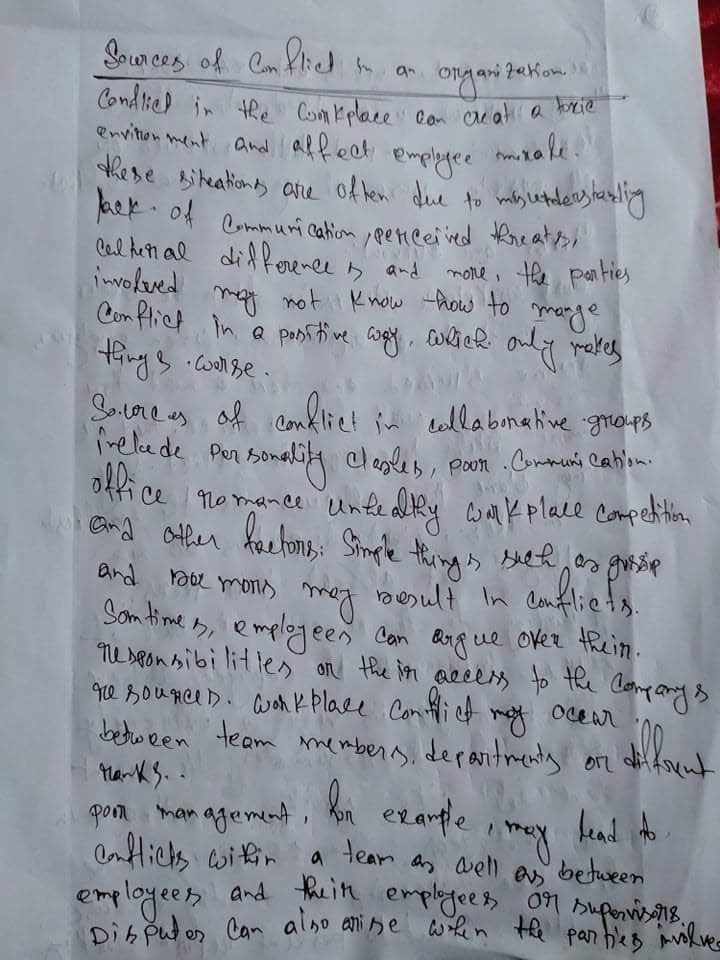 Sources of Conflict in an organization
Conflict in the workplace can creat a toxic
environment and affect employee morale.
these siteations are often due to misunderstanding
lack of communication, perceived threats,
cultural differences and more, the parties
involved may not know how to mange
Conflict in a positive way, which only makes
things worse.
Sources of conflict in collaborative groups
include personality clashes, poor communication.
office romance unhealthy workplace competition
and other factors: Simple things such as gossip
and may result in conflicts.
Somtimes, employees can argue over their
responsibilities or their access to the companys
resources. workplace conflict may occur
between team members, departments or different
ranks..
poor management, for example, may lead to
conflicts within a team as well as between
employees and their employees or supervisors.
Disputes can also arise when the parties involved